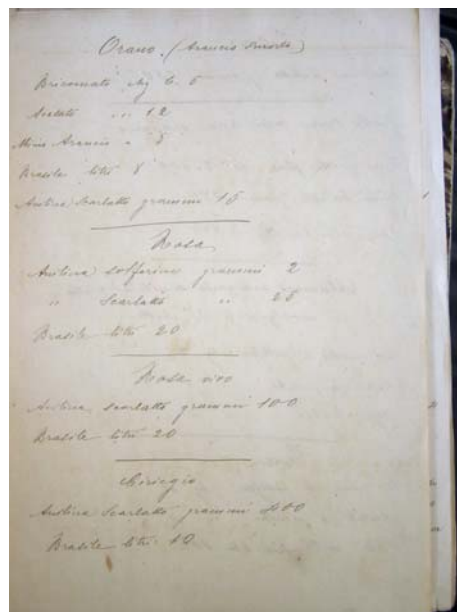 Orano. (Arancio
Bicromato Kg 6. 5
Acetato " " 12
Minio Arancio " 8
Brasile litri 8
Anilina Scarlatto grammi 15
Rosa
Anilina solferino grammi 2
" Scarlatto " " 25
Brasile litri 20
Rosa vivo
Anilina scarlatto grammi 100
Brasile litri 20
Ciriegio
Anilina Scarlatto grammi
Brasile litri 10